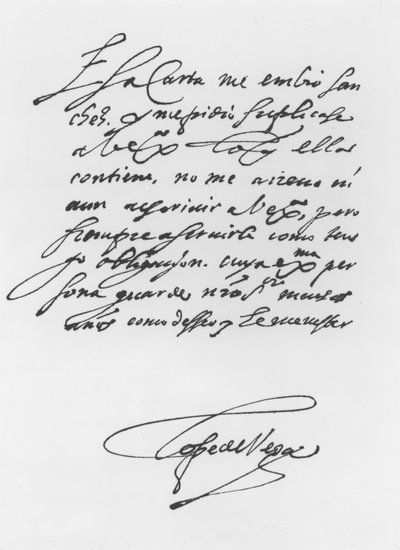 Esta Carta me embio san
chez. y me pidio suplicase
a V ex.ª lo q en ella se
contiene, no me atreuo ni
aun a escriuir a V ex.ª, pero
siempre a seruirle como ten
go obligaçion. cuya ex.ma per
sona guarde nro s.or muchos
años como desseo y he menester
Lope de Vega